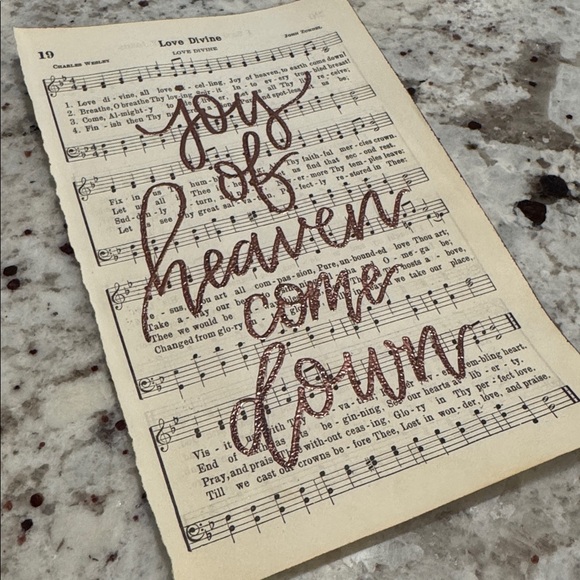 19
Love Divine
LOVE DIVINE
CHARLES WESLEY
JOHN ZUNDEL.
1. Love di - vine, all love celling, Joy of heaven, to earth come down!
2. Breathe, O breathe Thy lov-ing it In - to ev - ry bled breast!
3. Come, Al-might-y all Thy re - ceive,
4. Fin - ish then Thy and spot-less us be,
joy
of
heaven
come
down
Fix - in us hum Thy faith-ful mer-cies crown.
Let us all us find that sec - ond rest.
Sud - den - ly er-more Thy tem-ples leave:
Let see Thy great sal-va fect-ly re-stored in Thee:
sus art all com-pas-sion, Pure, un-bound-ed love Thou art;
Take a - way our O - me-ga be;
Thee we would be a - bove,
Changed from glo-ry we take our place,
Vis - it us with Thy va bling heart.
End of faith as its be - gin-ning, our hearts at lib - er - ty.
Pray, and praise with-out ceas-ing, Glo-ry in Thy per-fect love.
Till we cast our crowns be - fore Thee, Lost in won-der, love, and praise.